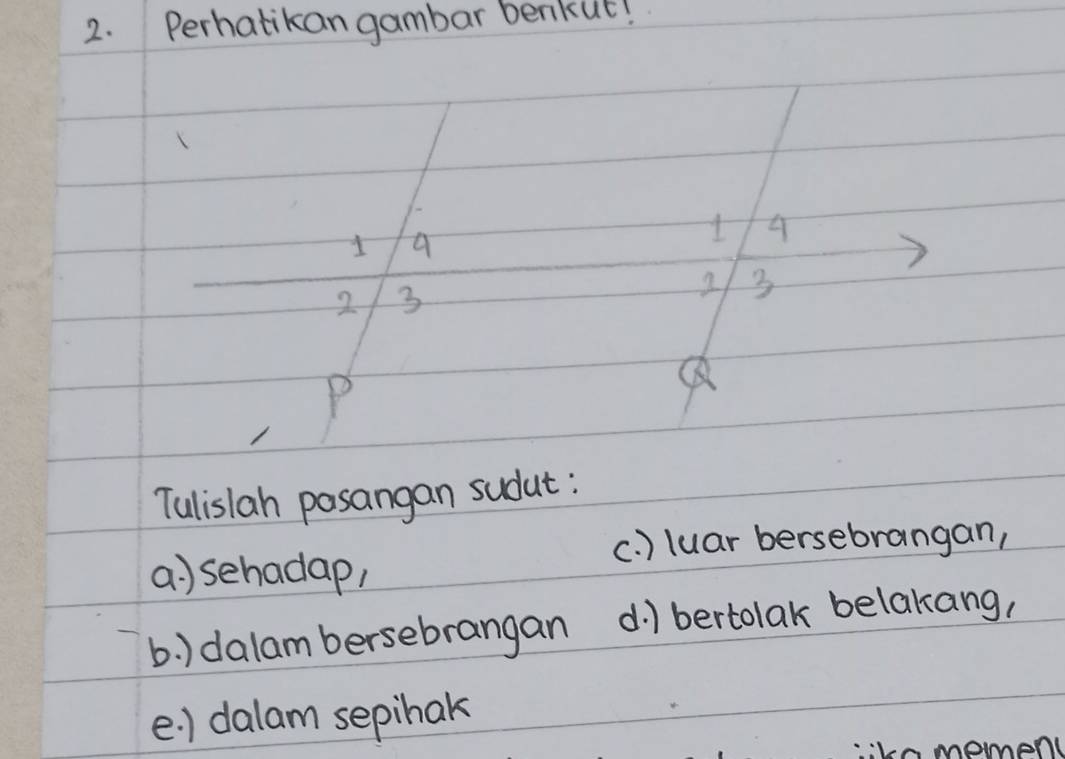 2. Perhatikan gambar berikut!
1 4 1 4
2 3 2 3
P Q
Tulislah pasangan sudut:
a.) sehadap, c.) luar bersebrangan,
b.) dalam bersebrangan d.) bertolak belakang,
e.) dalam sepihak
jika